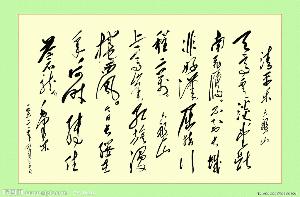 清平乐 六盘山
天高云淡望断
南飞雁不到长城
非好汉屈指行
程二万六盘山
上高峰红旗漫
卷西风今日长缨在
手何时缚住
苍龙 毛泽东